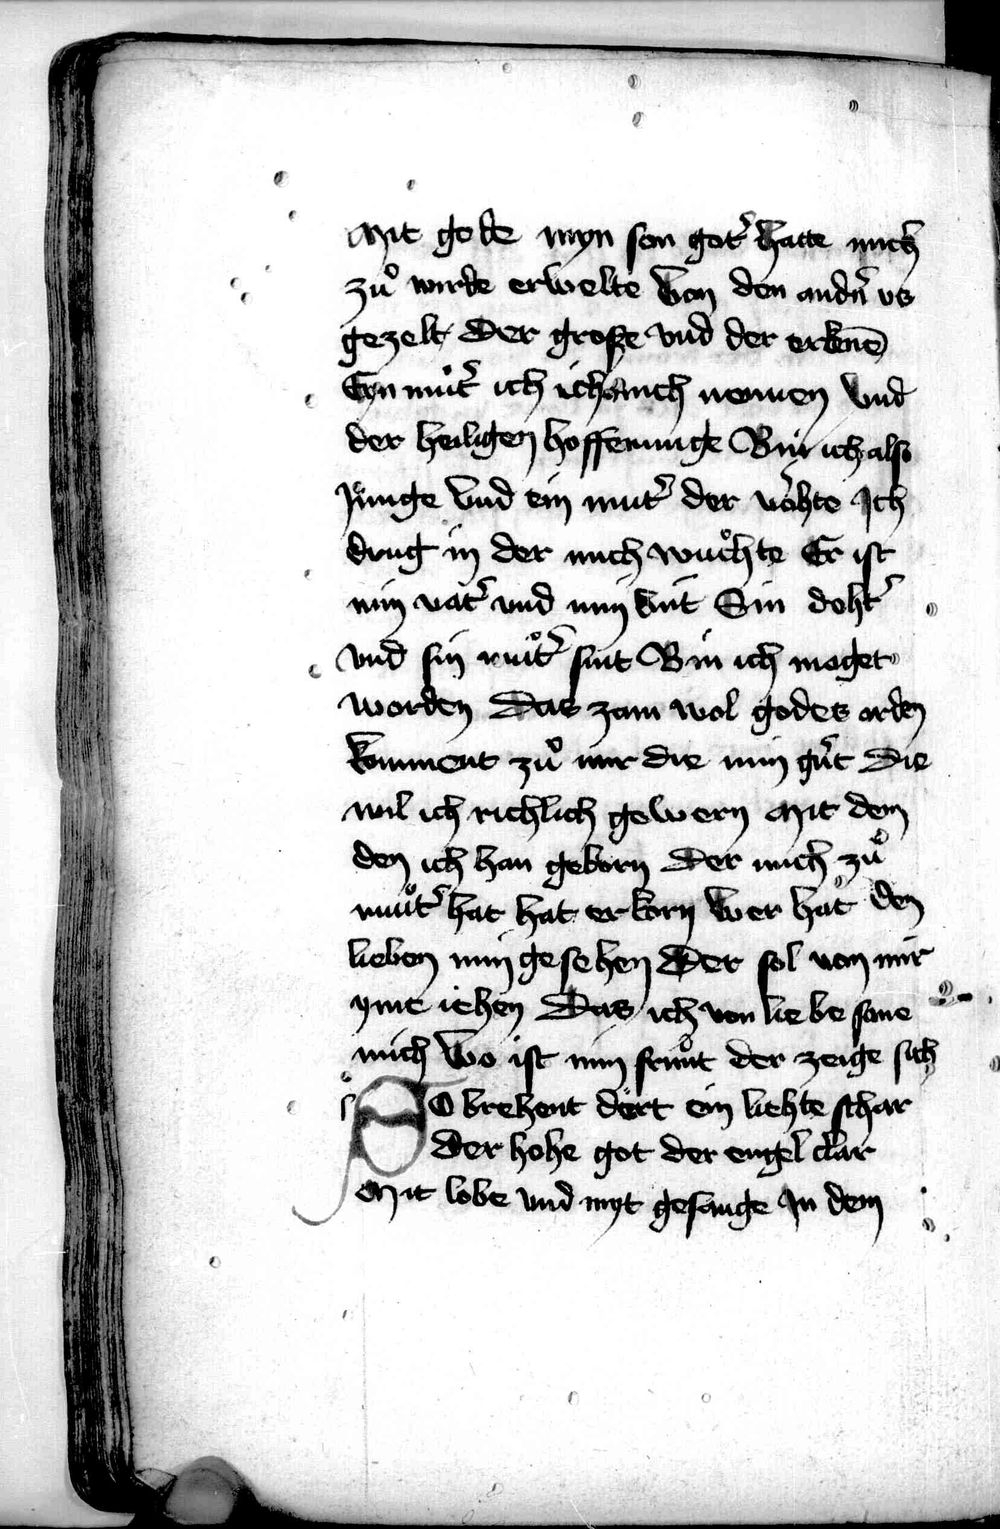 Mit gode myn son got᷑ hatte mich
zuͦ wirde erwelte Von den andn᷑ vs
gezelt Der große vnd der erkenē
Eyn muͦt᷑ ich ich mich nennen Vnd
der heiligen hoffenunge Bin ich also
Junge Vnd ein mut᷑ der vohte Ich
drug in der mich wuͦchte Er ist
min vat᷑ vnd min kint Sin doht᷑
Vnd sin muͦt᷑ sint Bin ich maget
worden Das zam wol godes orden
komment zuͦ mir die min gert Die
wil ich richlich gewern Mit dem
den ich han geborn Der mich zuͦ
muͦt᷑ hat hat erkorn Wer hat den
lieben min gesehen Der sol von mir
yme iehen Das ich von liebe sone
mich Wo ist min fruͦnt der zeige sich
SO brehent dort ein liehte schar
Der hohe got der engel clar
Mit lobe vnd myt gesange In dem